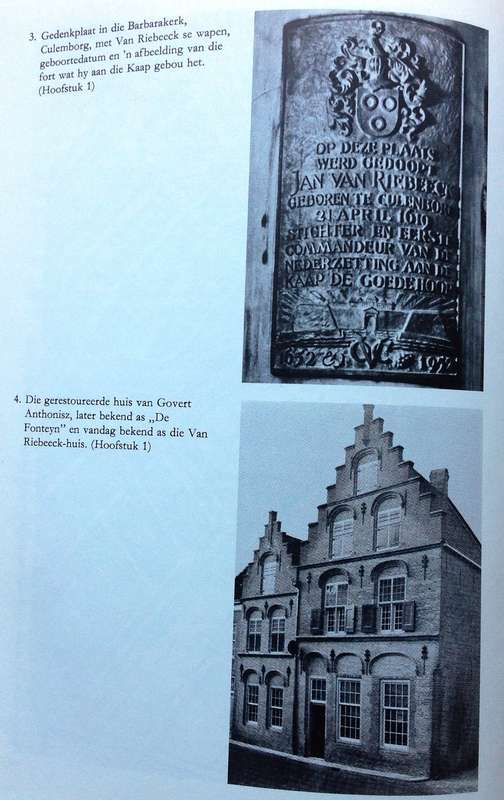 3. Gedenkplaat in die Barbarakerk,
Culemborg, met Van Riebeeck se wapen,
geboortedatum en 'n afbeelding van die
fort wat hy aan die Kaap gebou het.
(Hoofstuk 1)
OP DEZE PLAATS
WERD GEDOOPT
JAN VAN RIEBEECK
GEBOREN TE CULENBORG
21 APRIL 1619
STICHTER EN EERSTE
COMMANDEUR VAN DE
NEDERZETTING AAN DE
KAAP DE GOEDE HOOP
1652 1952
4. Die gerestoureerde huis van Govert
Anthonisz, later bekend as „De
Fonteyn" en vandag bekend as die Van
Riebeeck-huis. (Hoofstuk 1)